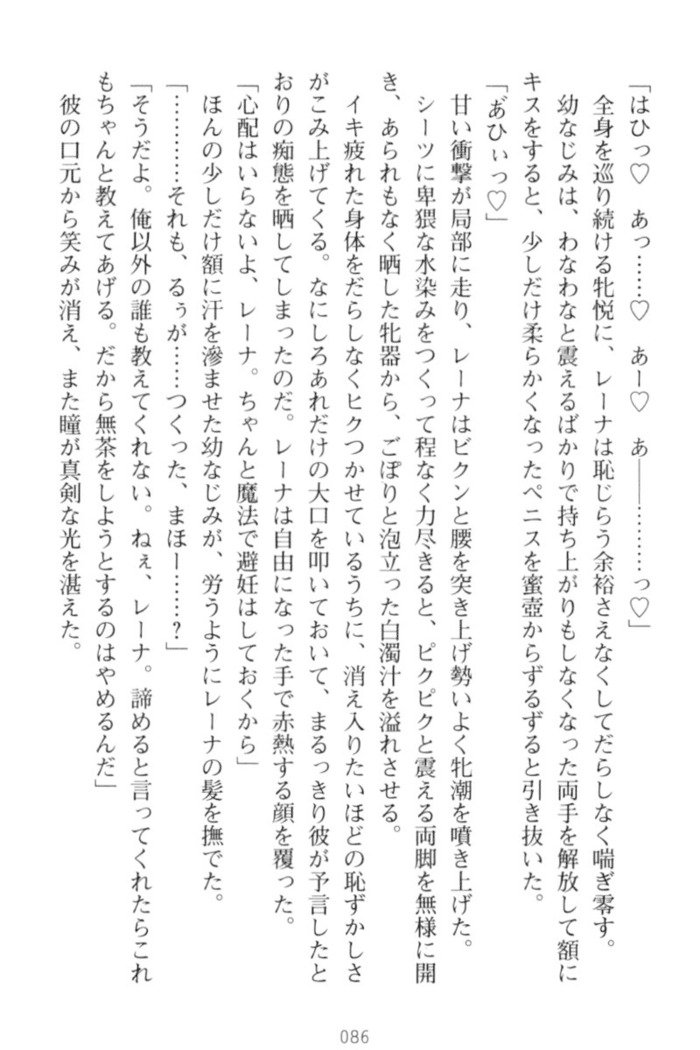 「はひっ♡　あっ……♡　あー♡　あ――………っ♡」
全身を巡り続ける牝悦に、レーナは恥じらう余裕さえなくしてだらしなく喘ぎ零す。
幼なじみは、わなわなと震えるばかりで持ち上がりもしなくなった両手を解放して額に
キスをすると、少しだけ柔らかくなったペニスを蜜壺からずるずると引き抜いた。
「あ゛ひぃっ♡」
甘い衝撃が局部に走り、レーナはビクンと腰を突き上げ勢いよく牝潮を噴き上げた。
シーツに卑猥な水染みをつくって程なく力尽きると、ピクピクと震える両脚を無様に開
き、あられもなく晒した牝器から、ごぽりと泡立った白濁汁を溢れさせる。
イキ疲れた身体をだらしなくヒクつかせているうちに、消え入りたいほどの恥ずかしさ
がこみ上げてくる。なにしろあれだけの大口を叩いておいて、まるっきり彼が予言したと
おりの痴態を晒してしまったのだ。レーナは自由になった手で赤熱する顔を覆った。
「心配はいらないよ、レーナ。ちゃんと魔法で避妊はしておくから」
ほんの少しだけ額に汗を滲ませた幼なじみが、労うようにレーナの髪を撫でた。
「…………それも、るぅが……つくった、まほー……？」
「そうだよ。俺以外の誰も教えてくれない。ねぇ、レーナ。諦めると言ってくれたらこれ
もちゃんと教えてあげる。だから無茶をしようとするのはやめるんだ」
彼の口元から笑みが消え、また瞳が真剣な光を湛えた。
086